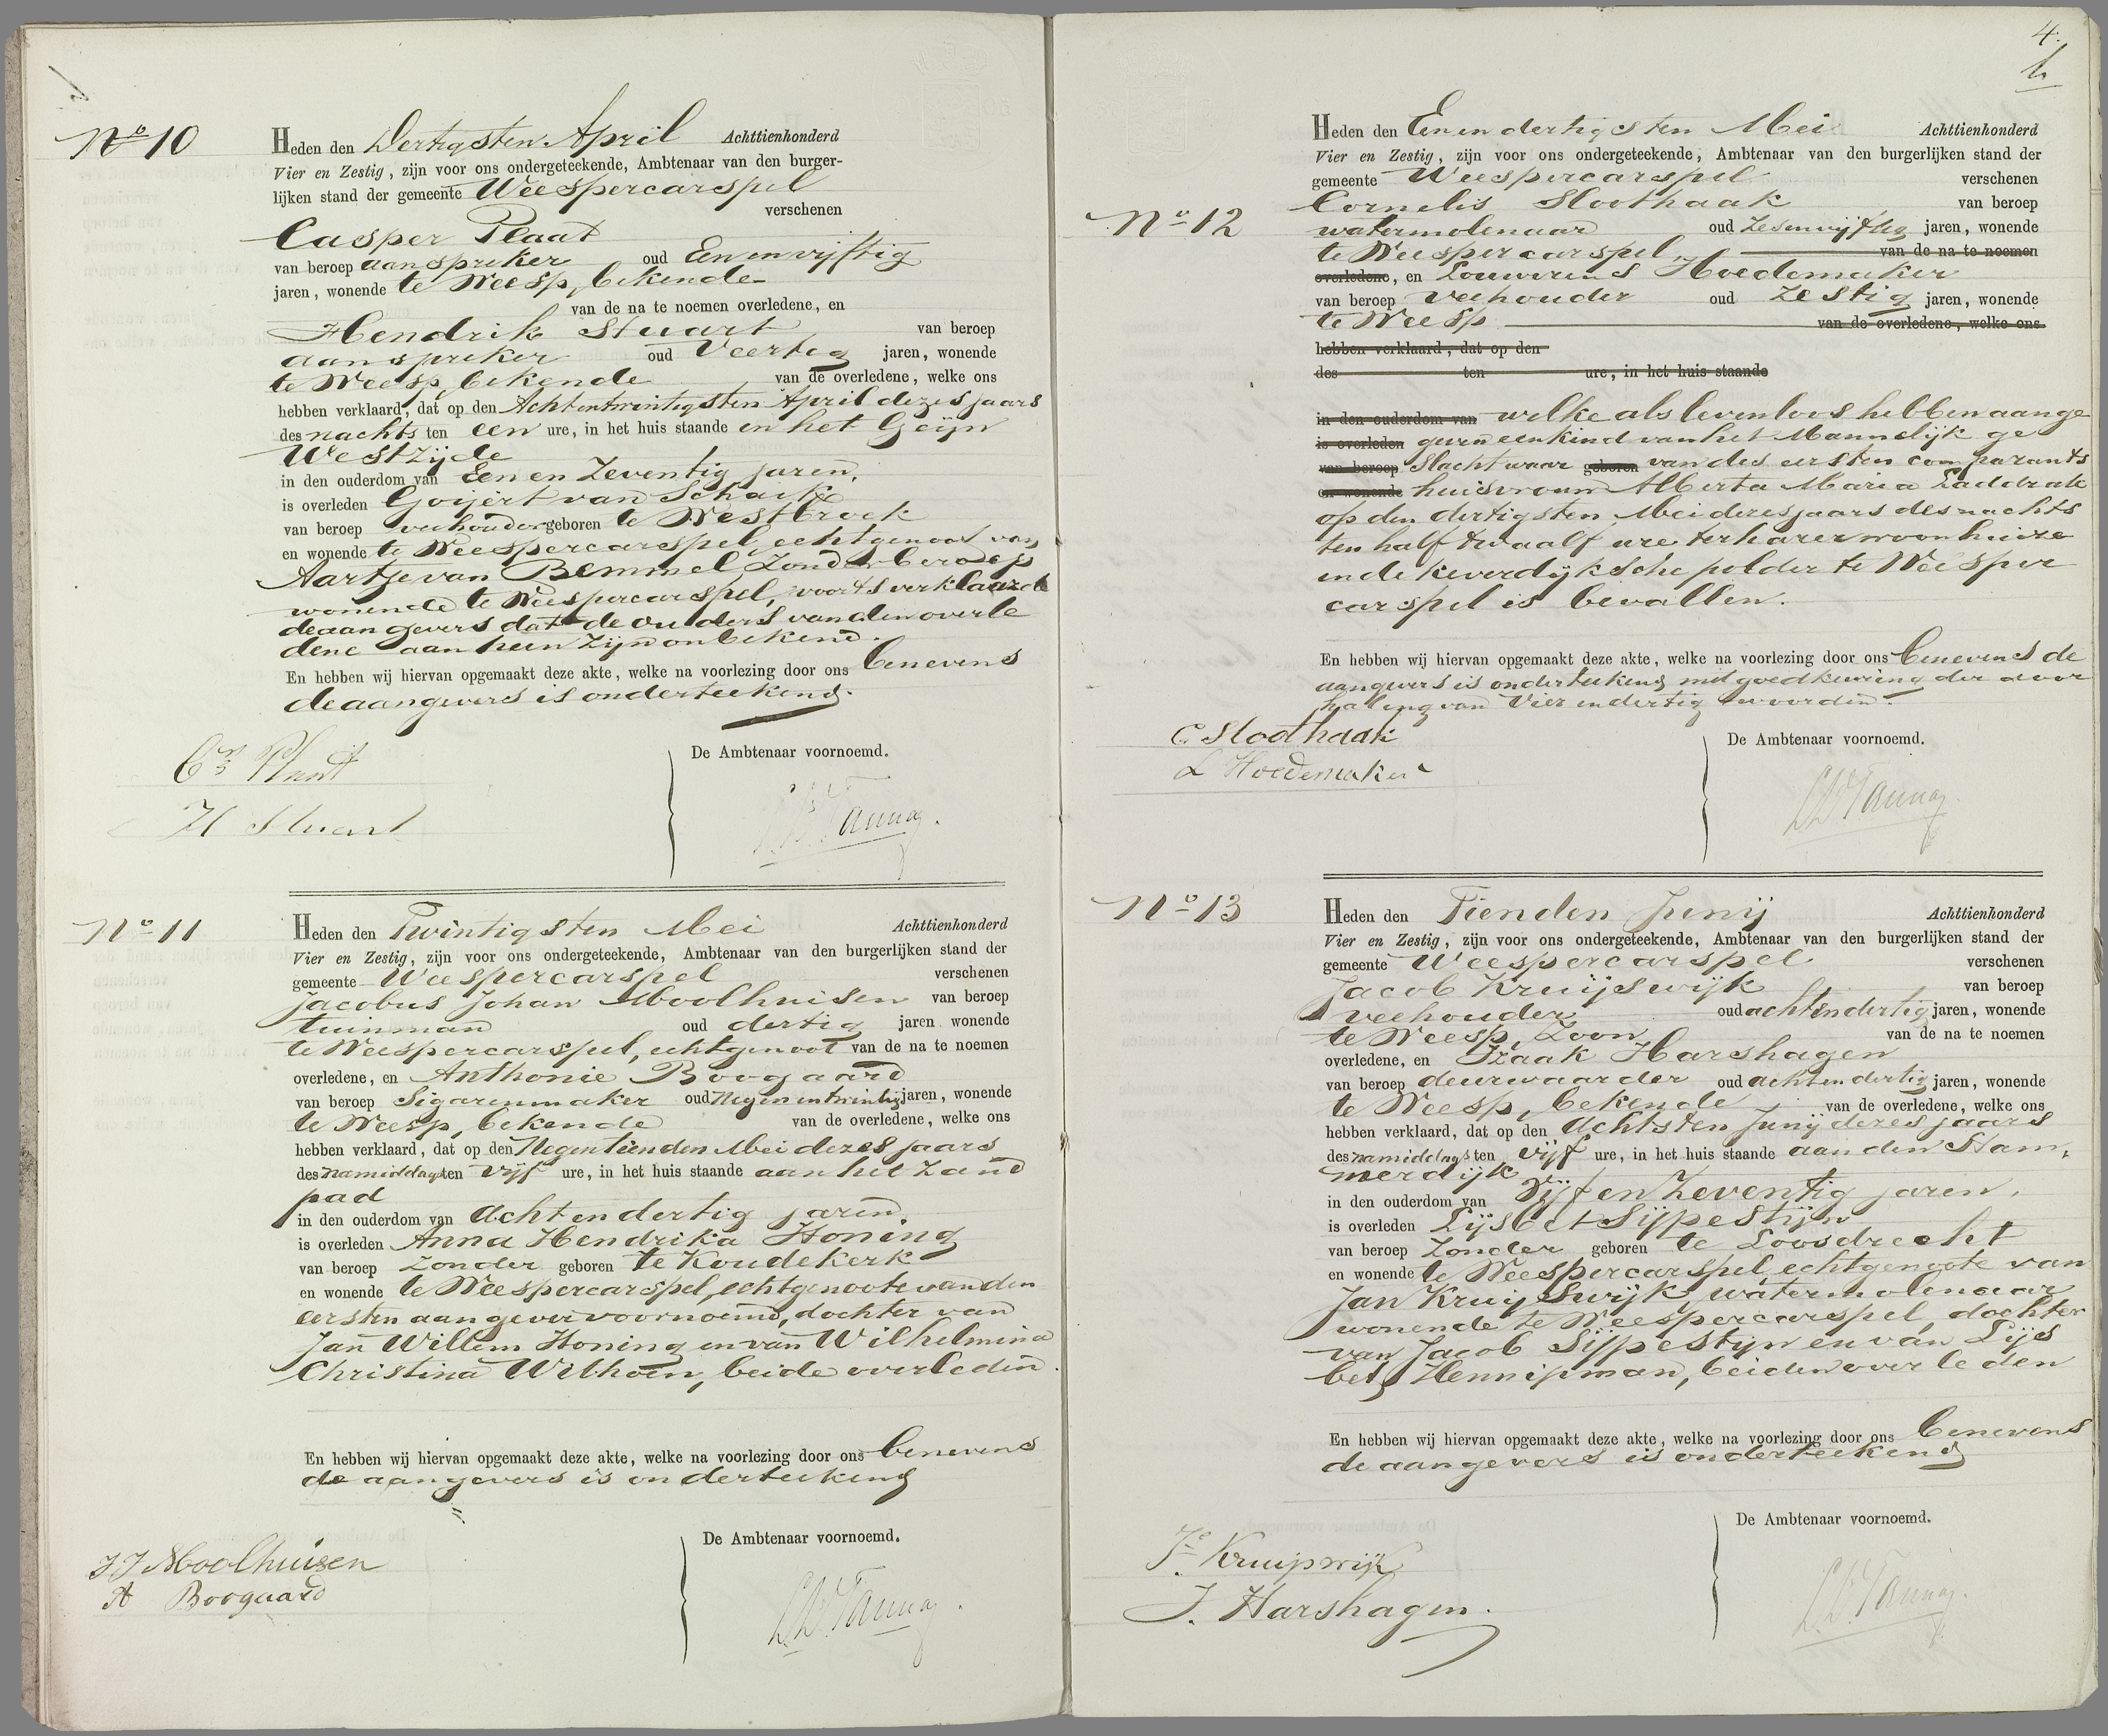 No 10
Heden den Dertigsten April Achttienhonderd
Vier en Zestig, zijn voor ons ondergeteekende, Ambtenaar van den burger-
lijken stand der gemeente Weespercarspel
verschenen
Casper Plaat
van beroep aanspreker oud Een en vijftig
jaren, wonende te Weesp, bekende
van de na te noemen overledene, en
Hendrik Stuart van beroep
aanspreker oud Veertig jaren, wonende
te Weesp, bekende van de overledene, welke ons
hebben verklaard, dat op den Achtentwintigsten April dezes jaars
des nachts ten een ure, in het huis staande in het Geijn
Westzijde
in den ouderdom van Een en Zeventig jaren,
is overleden Goijert van Schaik
van beroep veehouder geboren te Westbroek
en wonende te Weespercarspel, echtgenoot van
Aartje van Bemmel Zonder beroep
wonende te Weespercarspel, voorts verklaarde
de aangevers dat de ouders van den overle
dene aan hem zijn onbekend.
En hebben wij hiervan opgemaakt deze akte, welke na voorlezing door ons benevens
de aangevers is onderteekend.
De Ambtenaar voornoemd.
Cs Plaat
H Stuart
No 11
Heden den Twintigsten Mei Achttienhonderd
Vier en Zestig, zijn voor ons ondergeteekende, Ambtenaar van den burgerlijken stand der
gemeente Weespercarspel verschenen
Jacobus Johan Moolhuisen van beroep
tuinman oud dertig jaren wonende
te Weespercarspel, echtgenoot van de na te noemen
overledene, en Anthonie Boogaard
van beroep Sigarenmaker oud Negen en twintig jaren, wonende
te Weesp, bekende van de overledene, welke ons
hebben verklaard, dat op den Negentienden Mei dezes jaars
des namiddags ten vijf ure, in het huis staande aan het Zand
pad
in den ouderdom van Acht en dertig jaren,
is overleden Anna Hendrika Honing
van beroep Zonder geboren te Koudekerk
en wonende te Weespercarspel, echtgenoote van den
eersten aangever voornoemd, dochter van
Jan Willem Honing en van Wilhelmina
Christina Wilhoen, beide overleden.
En hebben wij hiervan opgemaakt deze akte, welke na voorlezing door ons benevens
de aangevers is onderteekend
De Ambtenaar voornoemd.
JJ Moolhuizen
A Boogaard
4.
No 12
Heden den Eenendertigsten Mei Achttienhonderd
Vier en Zestig, zijn voor ons ondergeteekende, Ambtenaar van den burgerlijken stand der
gemeente Weespercarspel verschenen
Cornelis Sloothaak van beroep
watermolenaar oud Zesenvijftig jaren, wonende
te Weespercarspel, van de na te noemen
overledene, en Louwerens Hoedemaker
van beroep veehouder oud Zestig jaren, wonende
te Weesp van de overledene, welke ons
hebben verklaard, dat op den
des ten ure, in het huis staande
in den ouderdom van welke als levenloos hebben aange
is overleden geven een kind van het Mannelijk ge
van beroep slacht waar geboren van des eersten comparants
en wonende huisvrouw Alberta Maria Laddrak
op den dertigsten Mei dezes jaars des nachts
ten half twaalf ure ter harer woonhuize
in de Keverdijksche polder te Weesper
carspel is bevallen.
En hebben wij hiervan opgemaakt deze akte, welke na voorlezing door ons benevens de
aangevers is onderteekend met goedkeuring der door
haling van Vier en dertig woorden.
De Ambtenaar voornoemd.
C Sloothaak
L Hoedemaker
No 13
Heden den Tienden Junij Achttienhonderd
Vier en Zestig, zijn voor ons ondergeteekende, Ambtenaar van den burgerlijken stand der
gemeente Weespercarspel verschenen
Jacob Kruijswijk van beroep
veehouder oud achtendertig jaren, wonende
te Weesp, Zoon van de na te noemen
overledene, en Izaak Harshagen
van beroep deurwaarder oud acht en dertig jaren, wonende
te Weesp, bekende van de overledene, welke ons
hebben verklaard, dat op den Achtsten Junij dezes jaars
des namiddags ten vijf ure, in het huis staande aan den Stam,
merdijk
in den ouderdom van Vijf en Zeventig jaren,
is overleden Lijsbet Sijpestijn
van beroep Zonder geboren te Loosdrecht
en wonende te Weespercarspel, echtgenoote van
Jan Kruijswijk, watermolenaar
wonende te Weespercarspel, dochter
van Jacob Sijpestijn en van Lijs
bet Hennipman, beiden overleden
En hebben wij hiervan opgemaakt deze akte, welke na voorlezing door ons benevens
de aangevers is onderteekend
De Ambtenaar voornoemd.
Jb Kruijswijk
J. Harshagen.